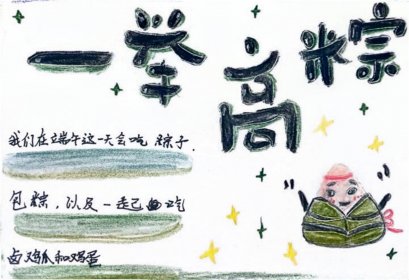 一举高粽
我们在端午这一天会吃 粽子.
包粽，以及一起己曲吃
卤鸡爪和鸡蛋